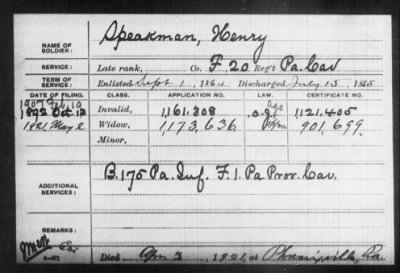 NAME OF SOLDIER: Speakman, Henry
SERVICE: Late rank, Co. F. 20 Reg't Pa. Cav
TERM OF SERVICE: Enlisted Sept 1, 1864 Discharged July 13, 1865
DATE OF FILING. CLASS. APPLICATION NO. LAW. CERTIFICATE NO.
1907 Feb 10
1892 Oct 12 Invalid, 1,161.308 1,121.405
1921, May 2 Widow, 1,173,636 901,699.
Minor,
ADDITIONAL SERVICES: B. 175 Pa. Inf. F. 1. Pa Prov. Cav.
REMARKS:
Died 3, 1921, at Phoenixville, Pa.